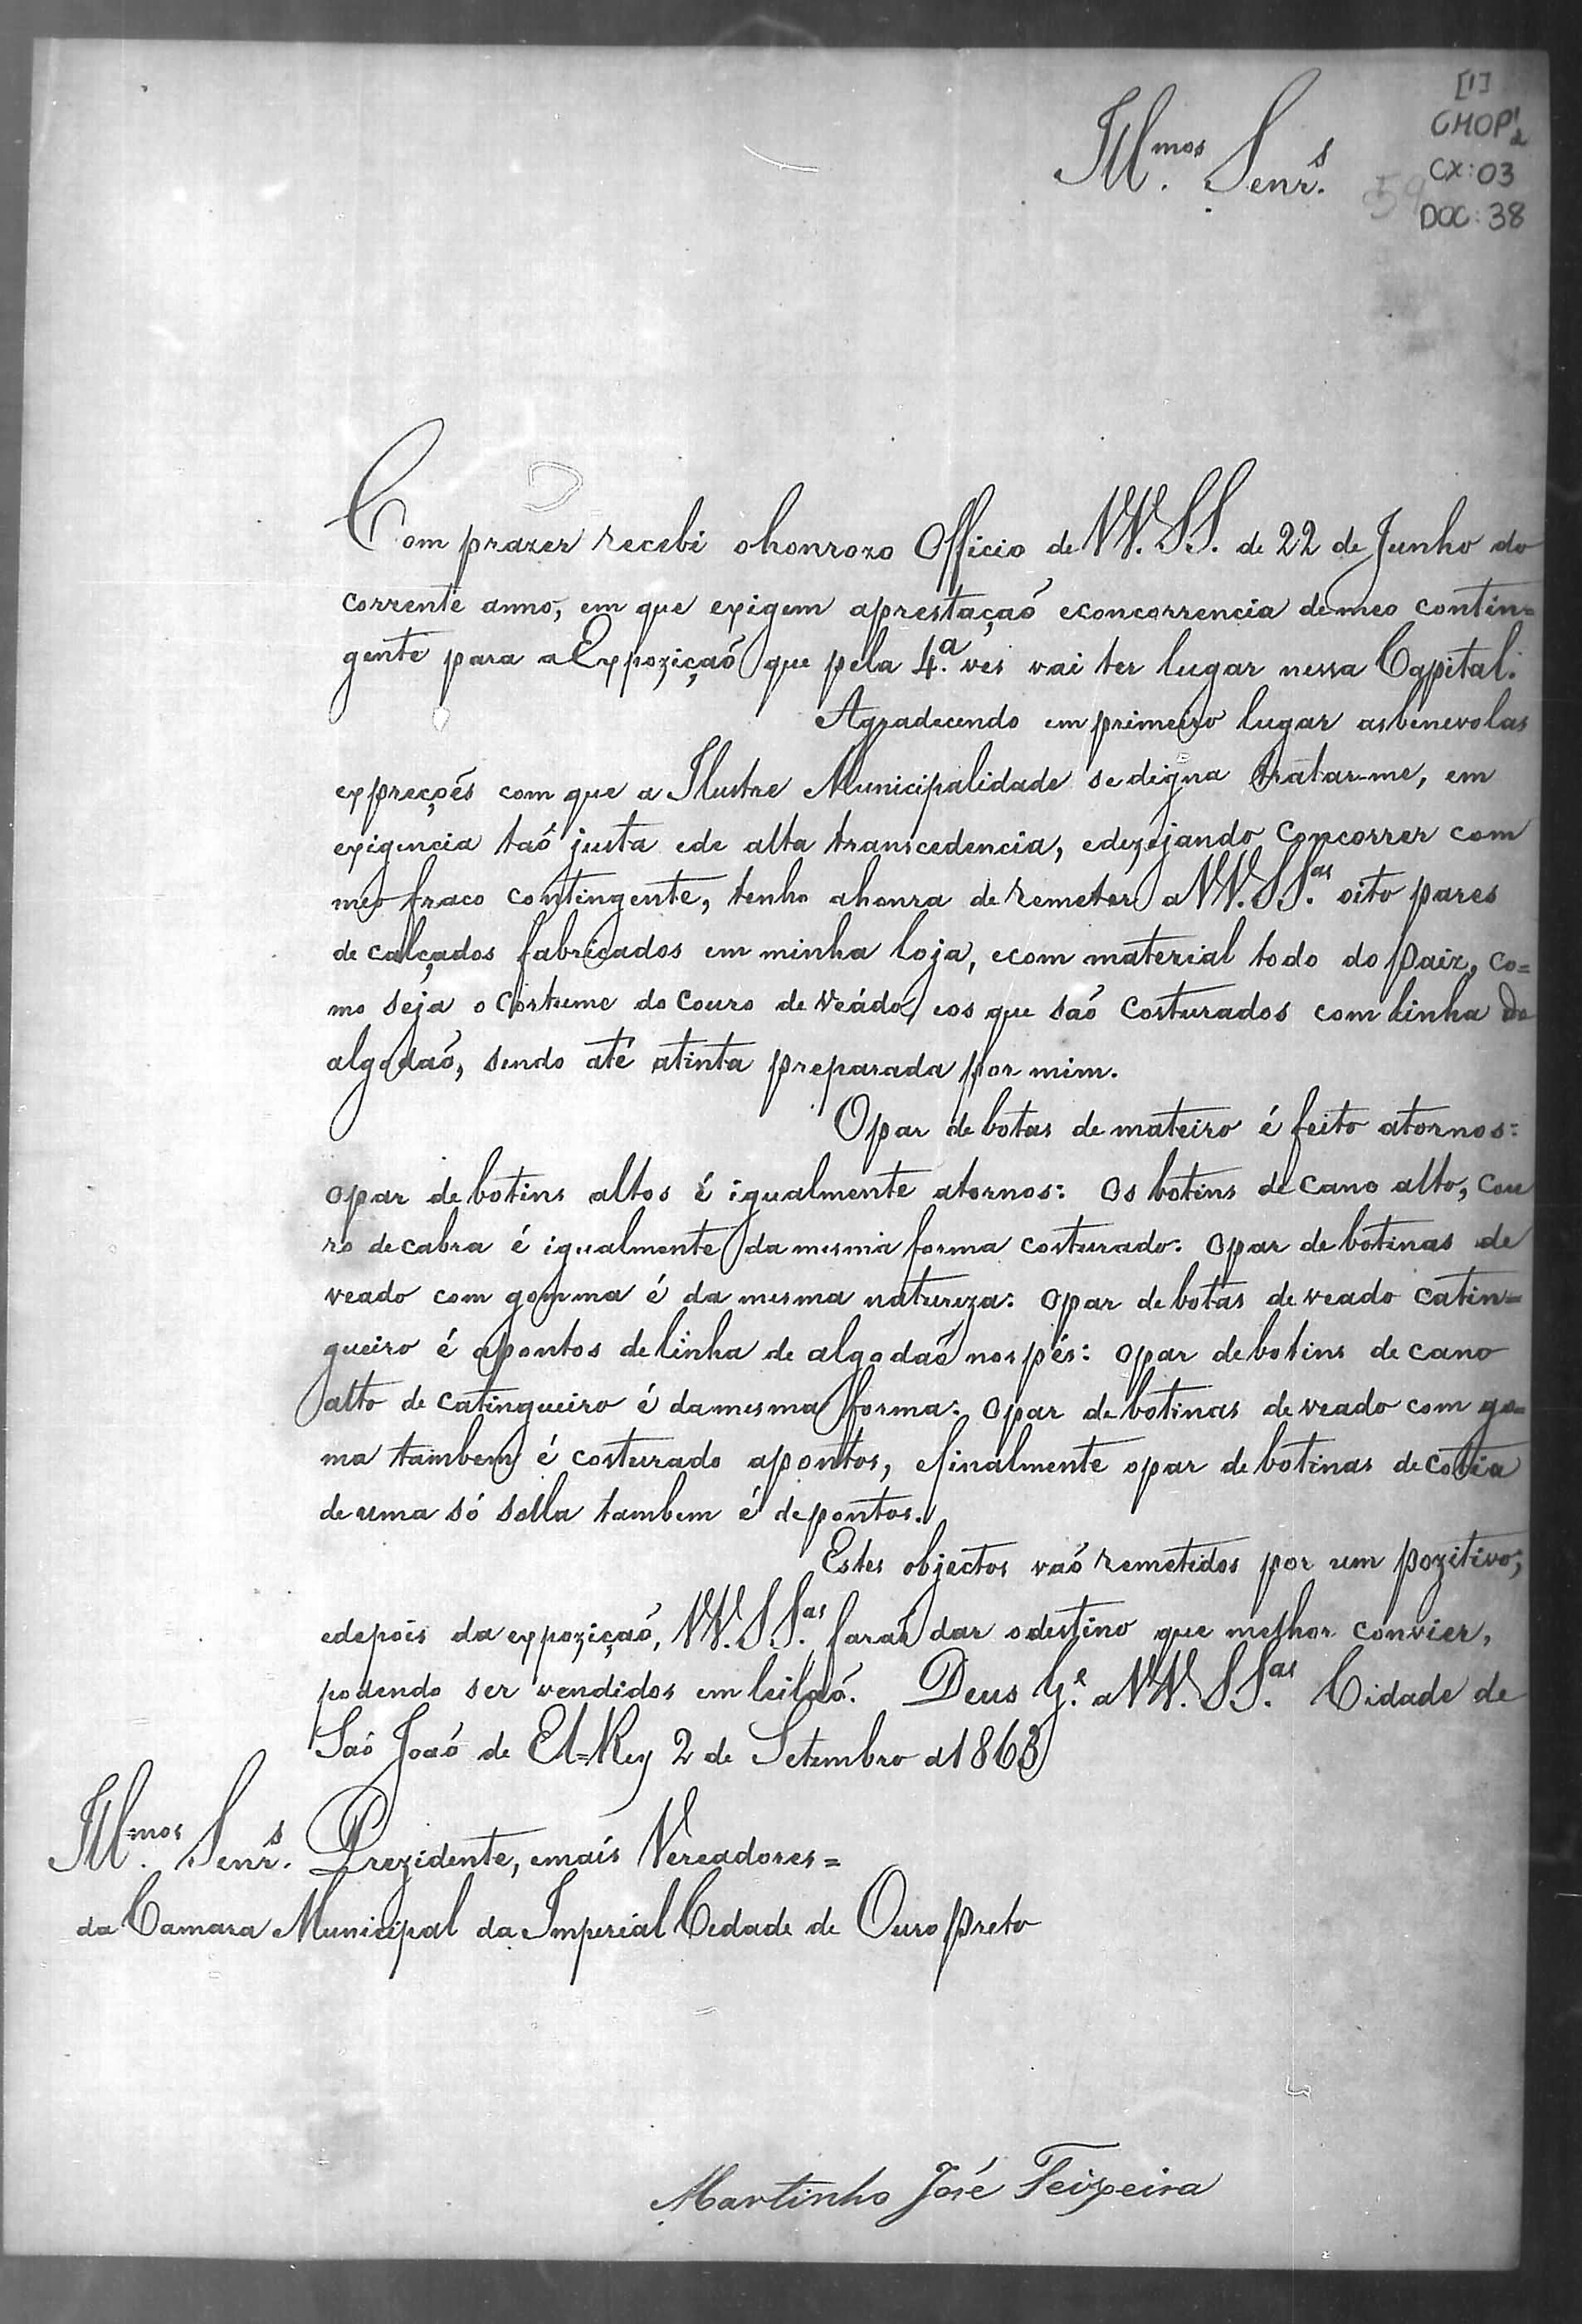 [1]
CMOP 1/2
CX: 03
DOC: 38
59
Ill.mos Senr.s
Com prazer recebi ohonrozo Officio de VV. SS. de 22 de Junho do
corrente anno, em que exigem aprestaçaõ econcorrencia demeo contin=
gente para aExpoziçaõ que pela 4.a ves vai ter lugar nessa Capital.
Agradecendo emprimeiro lugar asbenevolas
expreçoẽs com que a Ilustre Municipalidade sedigna tratar-me, em
exigencia taõ justa ede alta transcedencia, edezejando concorrer com
meo fraco contingente, tenho ahonra de remeter a VV. SS.as oito pares
de calçados fabricados em minha loja, ecom material todo do paiz, co=
mo seja o Cortume do Couro de Veádo, eos que saõ Costurados com linha de
algodaõ, sendo até atinta preparada por mim.
Opar de botas de mateiro é feito atornos:
opar de botins altos é igualmente atornos: Os botins de Cano alto, Cou
ro decabra é igualmente da mesma forma costurado: Opar de botinas de
veado com gomma é da mesma natureza: Opar de botas de veado catin=
gueiro é apontos delinha de algodaõ nos pés: Opar de botins de cano
alto de Catingueiro é damesma forma: Opar de botinas de veado com go=
ma tambem é costurado apontos, efinalmente opar de botinas de cotia
de uma só solla tambem é depontos.
Estes objectos vaõ remetidos por um pozitivo,
edepois da expoziçaõ, VV. SS.as faraõ dar odestino que melhor convier,
podendo ser vendidos em leilaõ. Deus G.e a VV. SS.as Cidade de
Saõ Joaõ de El=Rey 2 de Setembro d1863
Ill.mos Senr.s Prezidente, emais Vereadores=
da Camara Municipal da Imperial Cidade de Ouro preto
Martinho José Teixeira